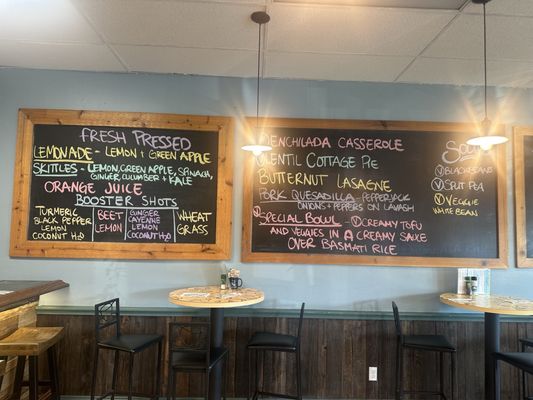 FRESH PRESSED
LEMONADE - LEMON + GREEN APPLE
SKITTLES - LEMON, GREEN APPLE, SPINACH,
GINGER, CUCUMBER + KALE
ORANGE JUICE
BOOSTER SHOTS
TURMERIC
BLACK PEPPER
LEMON
COCONUT H2O
BEET
LEMON
GINGER
CAYENNE
LEMON
COCONUT H2O
WHEAT
GRASS
ENCHILADA CASSEROLE
LENTIL COTTAGE PIE
BUTTERNUT LASAGNE
PORK QUESADILLA - PEPPERJACK
ONIONS + PEPPERS ON LAVASH
V SPECIAL BOWL - V CREAMY TOFU
AND VEGGIES IN A CREAMY SAUCE
OVER BASMATI RICE
V BLACK BEAN
V SPLIT PEA
V VEGGIE
WHITE BEAN